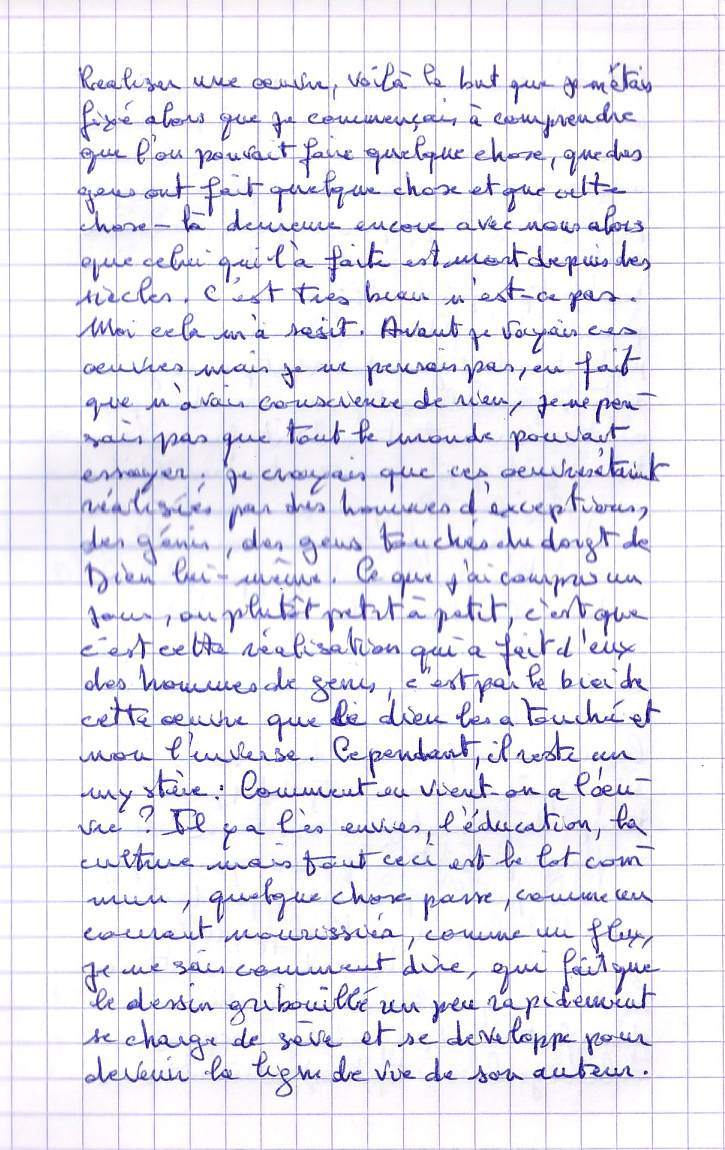 Realiser une œuvre, voilà le but que je m'étais
fixé alors que je commençais à comprendre
que l'on pouvait faire quelque chose, que des
gens ont fait quelque chose et que cette
chose-là demeure encore avec nous alors
que celui qui l'à faite est mort depuis des
siècles. C'est très beau n'est-ce pas.
Moi cela m'à saisit. Avant je voyais ces
œuvres mais je ne pensais pas, en fait
que n'avais conscience de rien, je ne pen-
sais pas que tout le monde pouvait
essayer, je croyais que ces œuvres étaint
réalisées par des hommes d'exceptions,
des génis, des gens touchés du doigt de
Dieu lui-même. Ce que j'ai compris un
jour, ou plutôt petit à petit, c'est que
c'est cette réalisation qui a fait d'eux
des hommes de genis, c'est par le biai de
cette œuvre que le dieu les a touché et
non l'inverse. Cependant, il reste un
mystère : Comment en vient-on a l'œu-
vre ? Il y a les envies, l'éducation, la
culture mais tout ceci est le lot com-
mun, quelque chose passe, comme un
courant nourissiea, comme un flux,
je ne sais comment dire, qui fait que
le dessin gribouillé un peu rapidement
se charge de sève et se developpe pour
devenir la ligne de vie de son auteur.